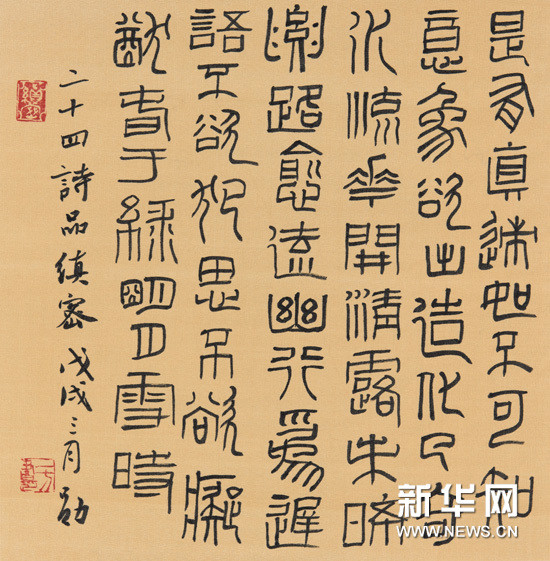 是有真迹如不可知
意象欲出造化已奇
水流華開清露未晞
要路愈遠幽行爲遲
語不欲犯思不欲癡
猷春于綠明月雪時
二十四詩品縝密 戊戌三月
新华网
WWW.NEWS.CN